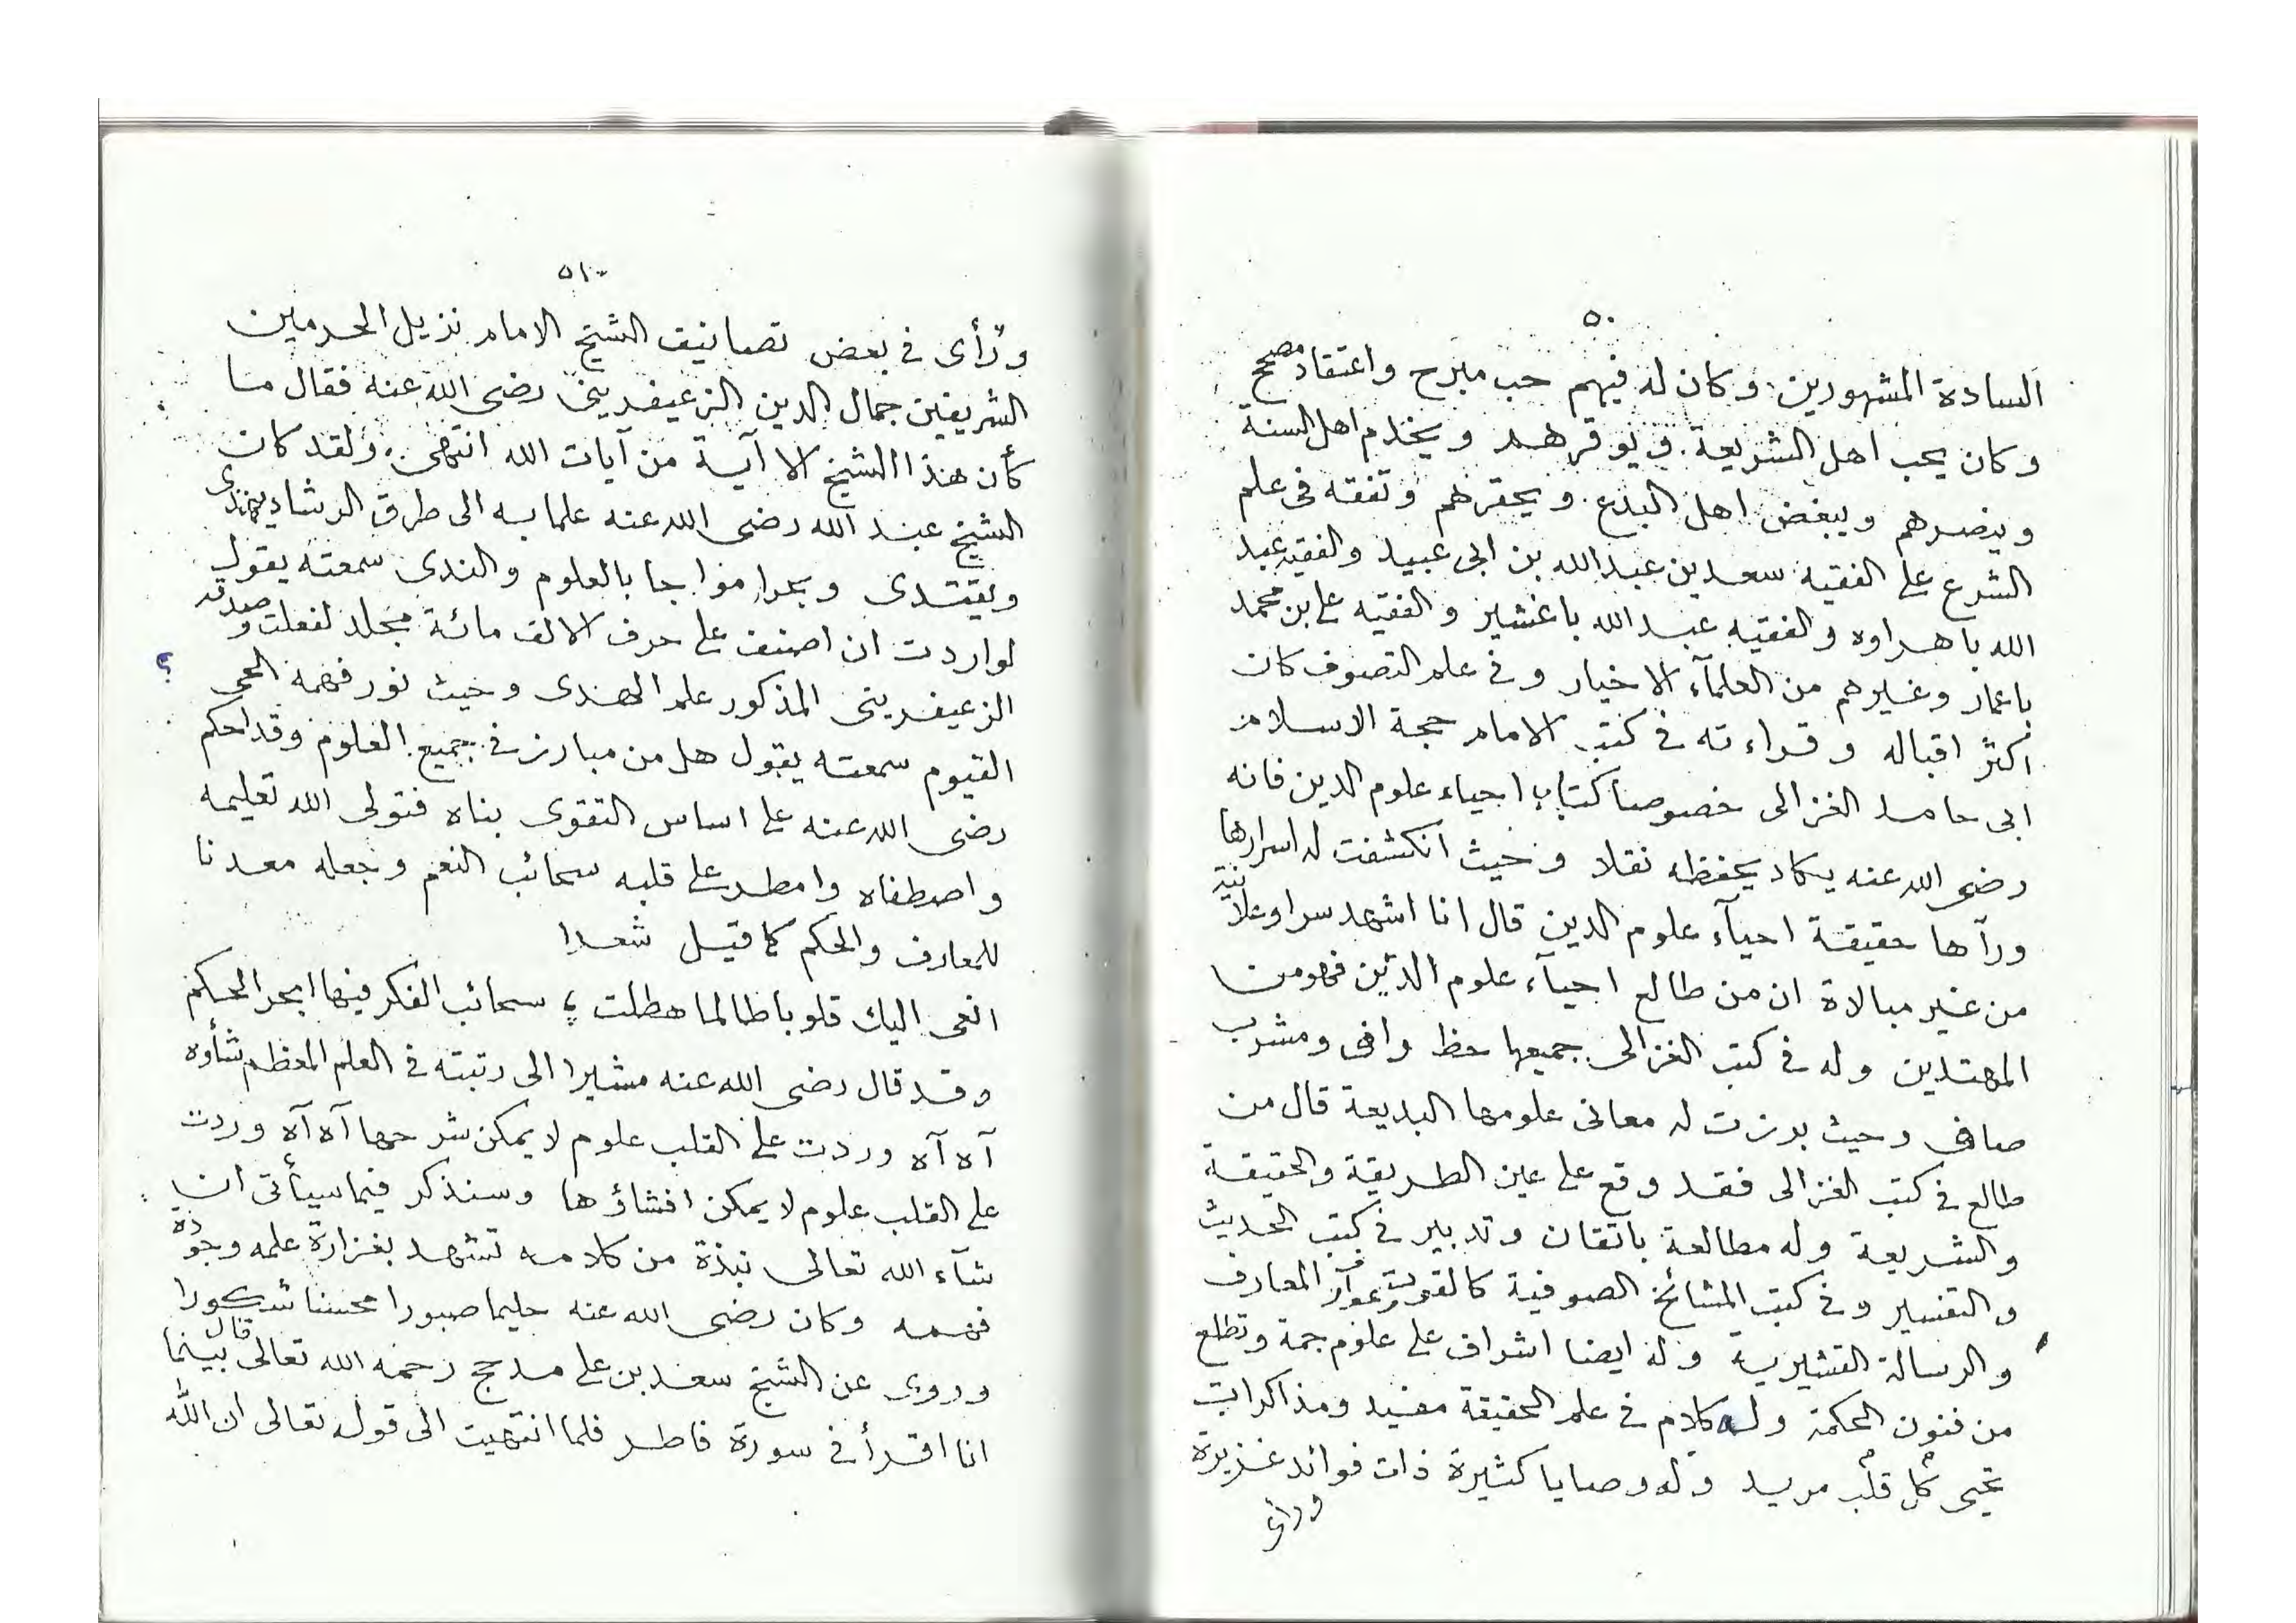 ٥٠
السادة المشهورين وكان له فيهم حب مبرح واعتقاد مصحح
وكان يحب اهل الشريعة ويوقرهم ويخدم اهل السنة
وينصرهم ويبغض اهل البدع ويحقرهم وتفقه فى علم
الشرع على الفقيه سعد بن عبد الله بن ابى عبيد والفقيه عبد
الله باهراوه والفقيه عبد الله باغشير والفقيه على بن محمد
باعمار وغيرهم من العلمآء الاخيار وفى علم التصوف كان
اكثر اقباله وقراءته فى كتب الامام حجة الاسلام
ابى حامد الغزالى خصوصا كتاب احياء علوم الدين فانه
رضى الله عنه يكاد يحفظه نقلا وحيث انكشفت له اسرارها
ورآها حقيقة احيآء علوم الدين قال انا اشهد سرا وعلانية
من غير مبالاة ان من طالع احيآء علوم الدين فهو من
المهتدين وله فى كتب الغزالى جميعها حظ وافى ومشرب
صافى وحيث برزت له معانى علومها البديعة قال من
طالع فى كتب الغزالى فقد وقع على عين الطريقة والحقيقة
والشريعة وله مطالعة باتقان وتدبير فى كتب الحديث
والتفسير وفى كتب المشائخ الصوفية كالقوت وعوارف المعارف
والرسالة القشيرية وله ايضا اشراف على علوم جمة وتطلع
من فنون الحكمة وله كلام فى علم الحقيقة مفيد ومذاكرات
تحيى كل قلب مريد وله وصايا كثيرة ذات فوائد غزيرة
ورأى
٥١
ورأى فى بعض تصانيف الشيخ الامام نزيل الحرمين
الشريفين جمال الدين الزعيفرينى رضى الله عنه فقال ما
كأن هذا الشيخ الا آية من آيات الله انتهى ولقد كان
الشيخ عبد الله رضى الله عنه علما به الى طرق الرشاد يهتدى
ويقتدى وبحرا مواجا بالعلوم والندى سمعته يقول
لو اردت ان اصنف على حرف الالف مائة مجلد لفعلت وصدقه
الزعيفرينى المذكور علم الهدى وحيث نور فهمه الحى
القيوم سمعته يقول هل من مبارز فى جميع العلوم وقد احكم
رضى الله عنه على اساس التقوى بناه فتولى الله تعليمه
واصطفاه وامطر على قلبه سحائب النعم وجعله معدنا
للمعارف والحكم كما قيل شعرا
انعى اليك قلوبا طالما هطلت ؛ سحائب الفكر فيها ابحر الحكم
وقد قال رضى الله عنه مشيرا الى رتبته فى العلم المعظم شأوه
آه آه وردت على القلب علوم لا يمكن شرحها آه آه وردت
على القلب علوم لا يمكن افشاؤها وسنذكر فيما سيأتى ان
شآء الله تعالى نبذة من كلامه تشهد بغزارة علمه وجودة
فهمه وكان رضى الله عنه حليما صبورا محسنا شكورا
وروى عن الشيخ سعد بن على مدحج رحمه الله تعالى قال بينما
انا اقرأ فى سورة فاطر فلما انتهيت الى قوله تعالى ان الله
؟